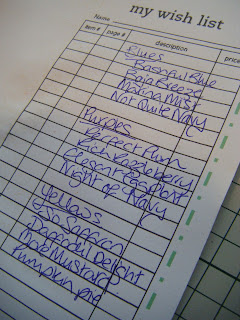 my wish list
Name
item # page # description price
Blues
Bashful Blue
Baja Breeze
Marina Mist
Not Quite Navy
Purples
Perfect Plum
Rich Razzleberry
Elegant Eggplant
Night of Navy
Yellows
So Saffron
Daffodil Delight
More Mustard
Pumpkin Pie